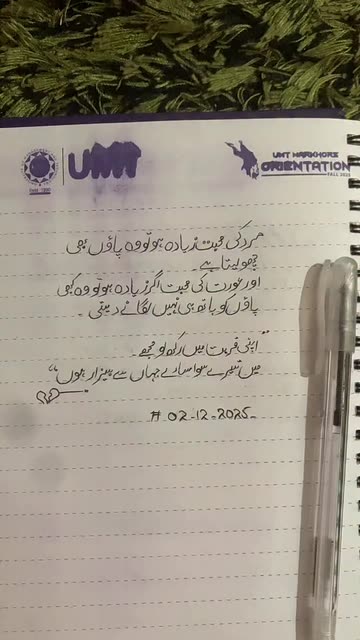 UMT
UMT MARKHORS
ORIENTATION
FALL 2025
مرد کی محبت زیادہ ہو تو وہ پاؤں بھی
چھو لیتا ہے۔
اور عورت کی محبت اگر زیادہ ہو تو وہ کبھی
پاؤں کو ہاتھ ہی نہیں لگانے دیتی۔
"اپنی قربت میں رکھ لو مجھے
میں تیرے سوا سارے جہاں سے بیزار ہوں"
# 02-12-2025-